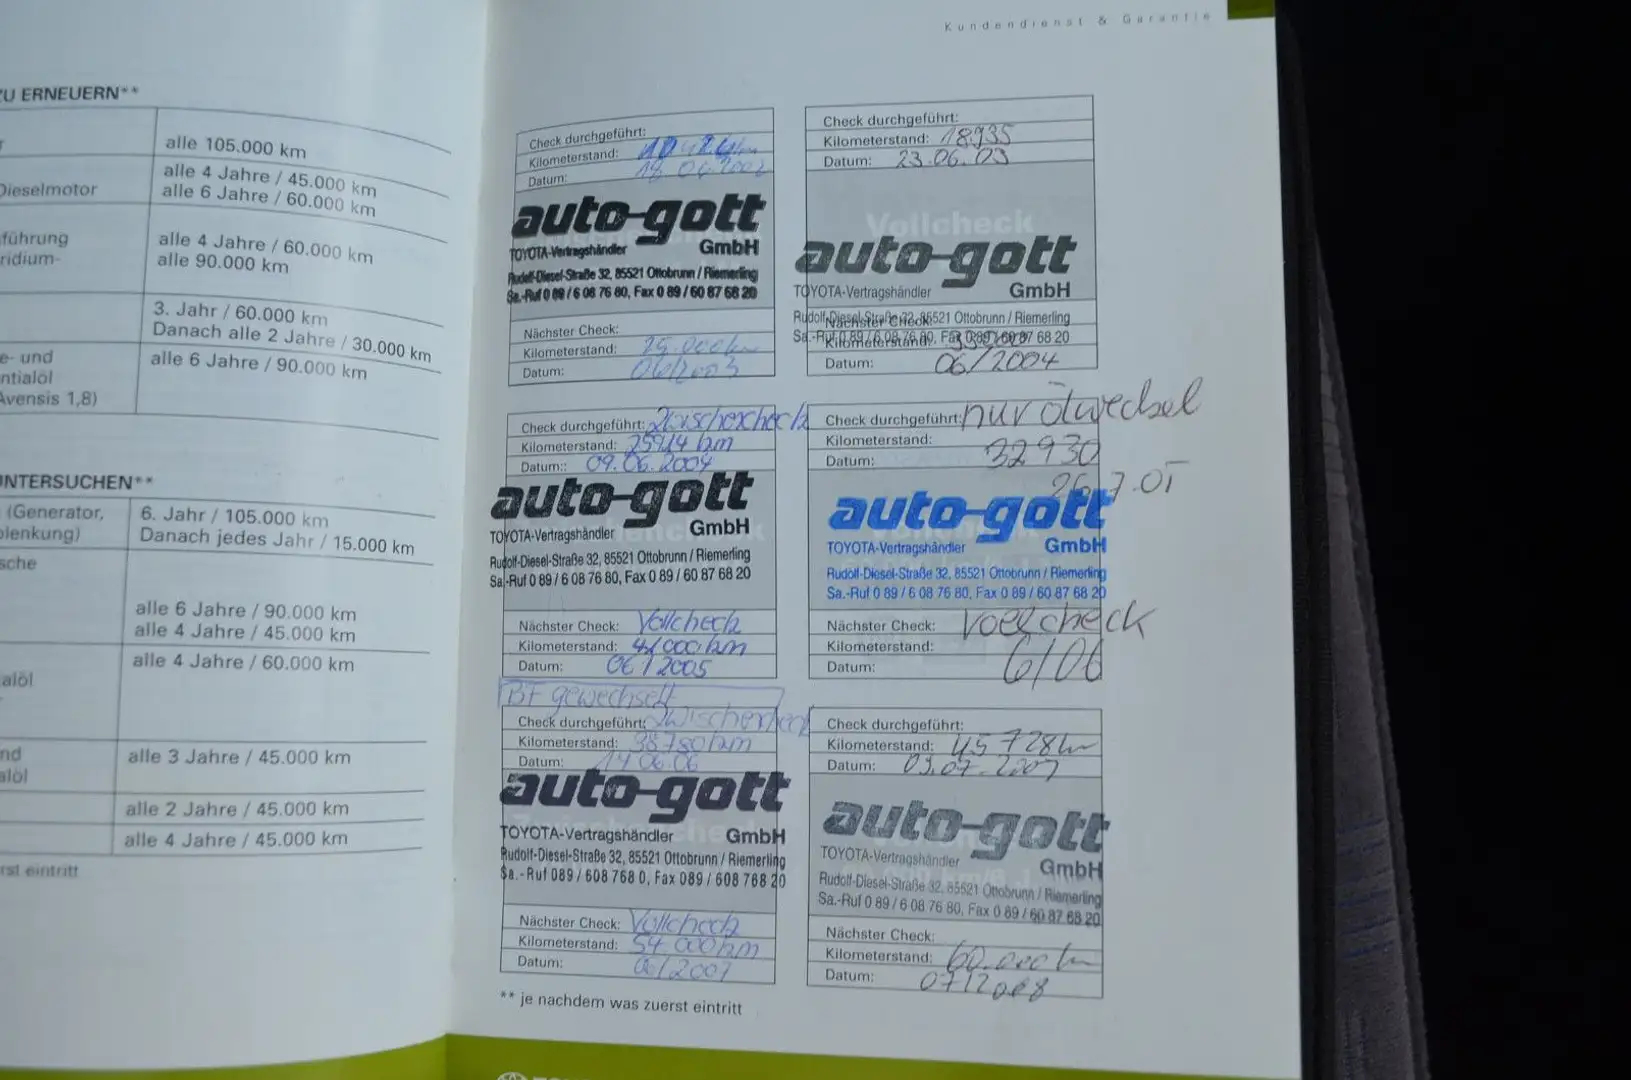 Kundendienst & Garantie
ZU ERNEUERN**
alle 105.000 km
Dieselmotor
alle 4 Jahre / 45.000 km
alle 6 Jahre / 60.000 km
führung
ridium-
alle 4 Jahre / 60.000 km
alle 90.000 km
3. Jahr / 60.000 km
Danach alle 2 Jahre / 30.000 km
e- und
ntialöl
Avensis 1,8)
alle 6 Jahre / 90.000 km
UNTERSUCHEN**
(Generator,
olenkung)
6. Jahr / 105.000 km
Danach jedes Jahr / 15.000 km
sche
alle 6 Jahre / 90.000 km
alle 4 Jahre / 45.000 km
alöl
alle 4 Jahre / 60.000 km
nd
alöl
alle 3 Jahre / 45.000 km
alle 2 Jahre / 45.000 km
alle 4 Jahre / 45.000 km
rst eintritt
Check durchgeführt:
Kilometerstand:
Datum:
auto-gott
TOYOTA-Vertragshändler GmbH
Rudolf-Diesel-Straße 32, 85521 Ottobrunn / Riemerling
Sa.-Ruf 0 89 / 6 08 76 80, Fax 0 89 / 60 87 68 20
Nächster Check:
Kilometerstand: 25.000km
Datum: 06/2003
Check durchgeführt:
Kilometerstand: 18.935
Datum: 23.06.03
Vollcheck
auto-gott
TOYOTA-Vertragshändler GmbH
Rudolf-Diesel-Straße 32, 85521 Ottobrunn / Riemerling
Nächster Check:
Sa.-Ruf 0 89 / 6 08 76 80, Fax 0 89 / 60 87 68 20
Kilometerstand:
Datum: 06/2004
Check durchgeführt: Zwischencheck
Kilometerstand: 25914 km
Datum:: 09.06.2004
auto-gott
TOYOTA-Vertragshändler GmbH
Rudolf-Diesel-Straße 32, 85521 Ottobrunn / Riemerling
Sa.-Ruf 0 89 / 6 08 76 80, Fax 0 89 / 60 87 68 20
Nächster Check: Vollcheck
Kilometerstand: 41.000 km
Datum: 06/2005
Check durchgeführt: nur Ölwechsel
Kilometerstand:
Datum: 32930
26.7.05
auto-gott
TOYOTA-Vertragshändler GmbH
Rudolf-Diesel-Straße 32, 85521 Ottobrunn / Riemerling
Sa.-Ruf 0 89 / 6 08 76 80, Fax 0 89 / 60 87 68 20
Nächster Check: Vollcheck
Kilometerstand:
Datum: 6/06
BF gewechselt
Check durchgeführt: Zwischencheck
Kilometerstand: 38780 km
Datum: 14.06.06
auto-gott
TOYOTA-Vertragshändler GmbH
Rudolf-Diesel-Straße 32, 85521 Ottobrunn / Riemerling
Sa.-Ruf 089 / 608 768 0, Fax 089 / 608 768 20
Nächster Check: Vollcheck
Kilometerstand: 54.000km
Datum: 06/2007
Check durchgeführt:
Kilometerstand: 45 728km
Datum: 03.07.2007
auto-gott
TOYOTA-Vertragshändler GmbH
Rudolf-Diesel-Straße 32, 85521 Ottobrunn / Riemerling
Sa.-Ruf 0 89 / 6 08 76 80, Fax 0 89 / 60 87 68 20
Nächster Check:
Kilometerstand: 60.000 km
Datum: 07/2008
** je nachdem was zuerst eintritt